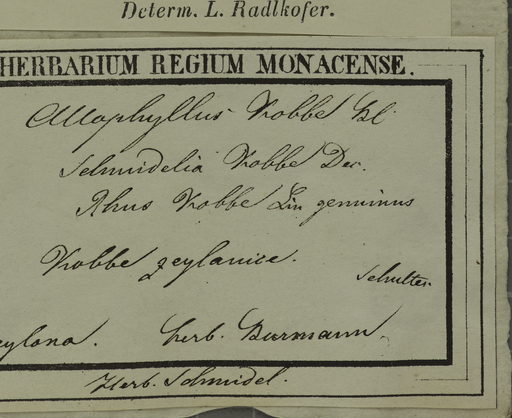 Determ. L. Radlkofer.
HERBARIUM REGIUM MONACENSE.
Allophyllus Kobbe Bl
Schmidelia Kobbe Dec.
Rhus Kobbe Lin genuinus
Kobbe zeylanice.
Schultes
eylona. herb. Burmann.
Herb. Schmidel.